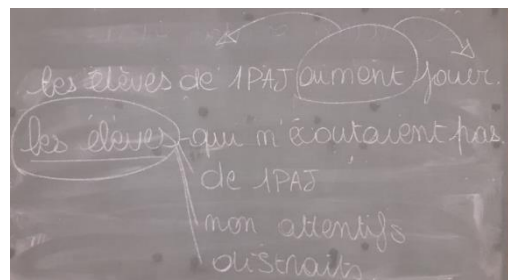 Les élèves de 1PAJ aiment jouer.
les élèves qui n'écoutaient pas
de 1PAJ
non attentifs
distraits